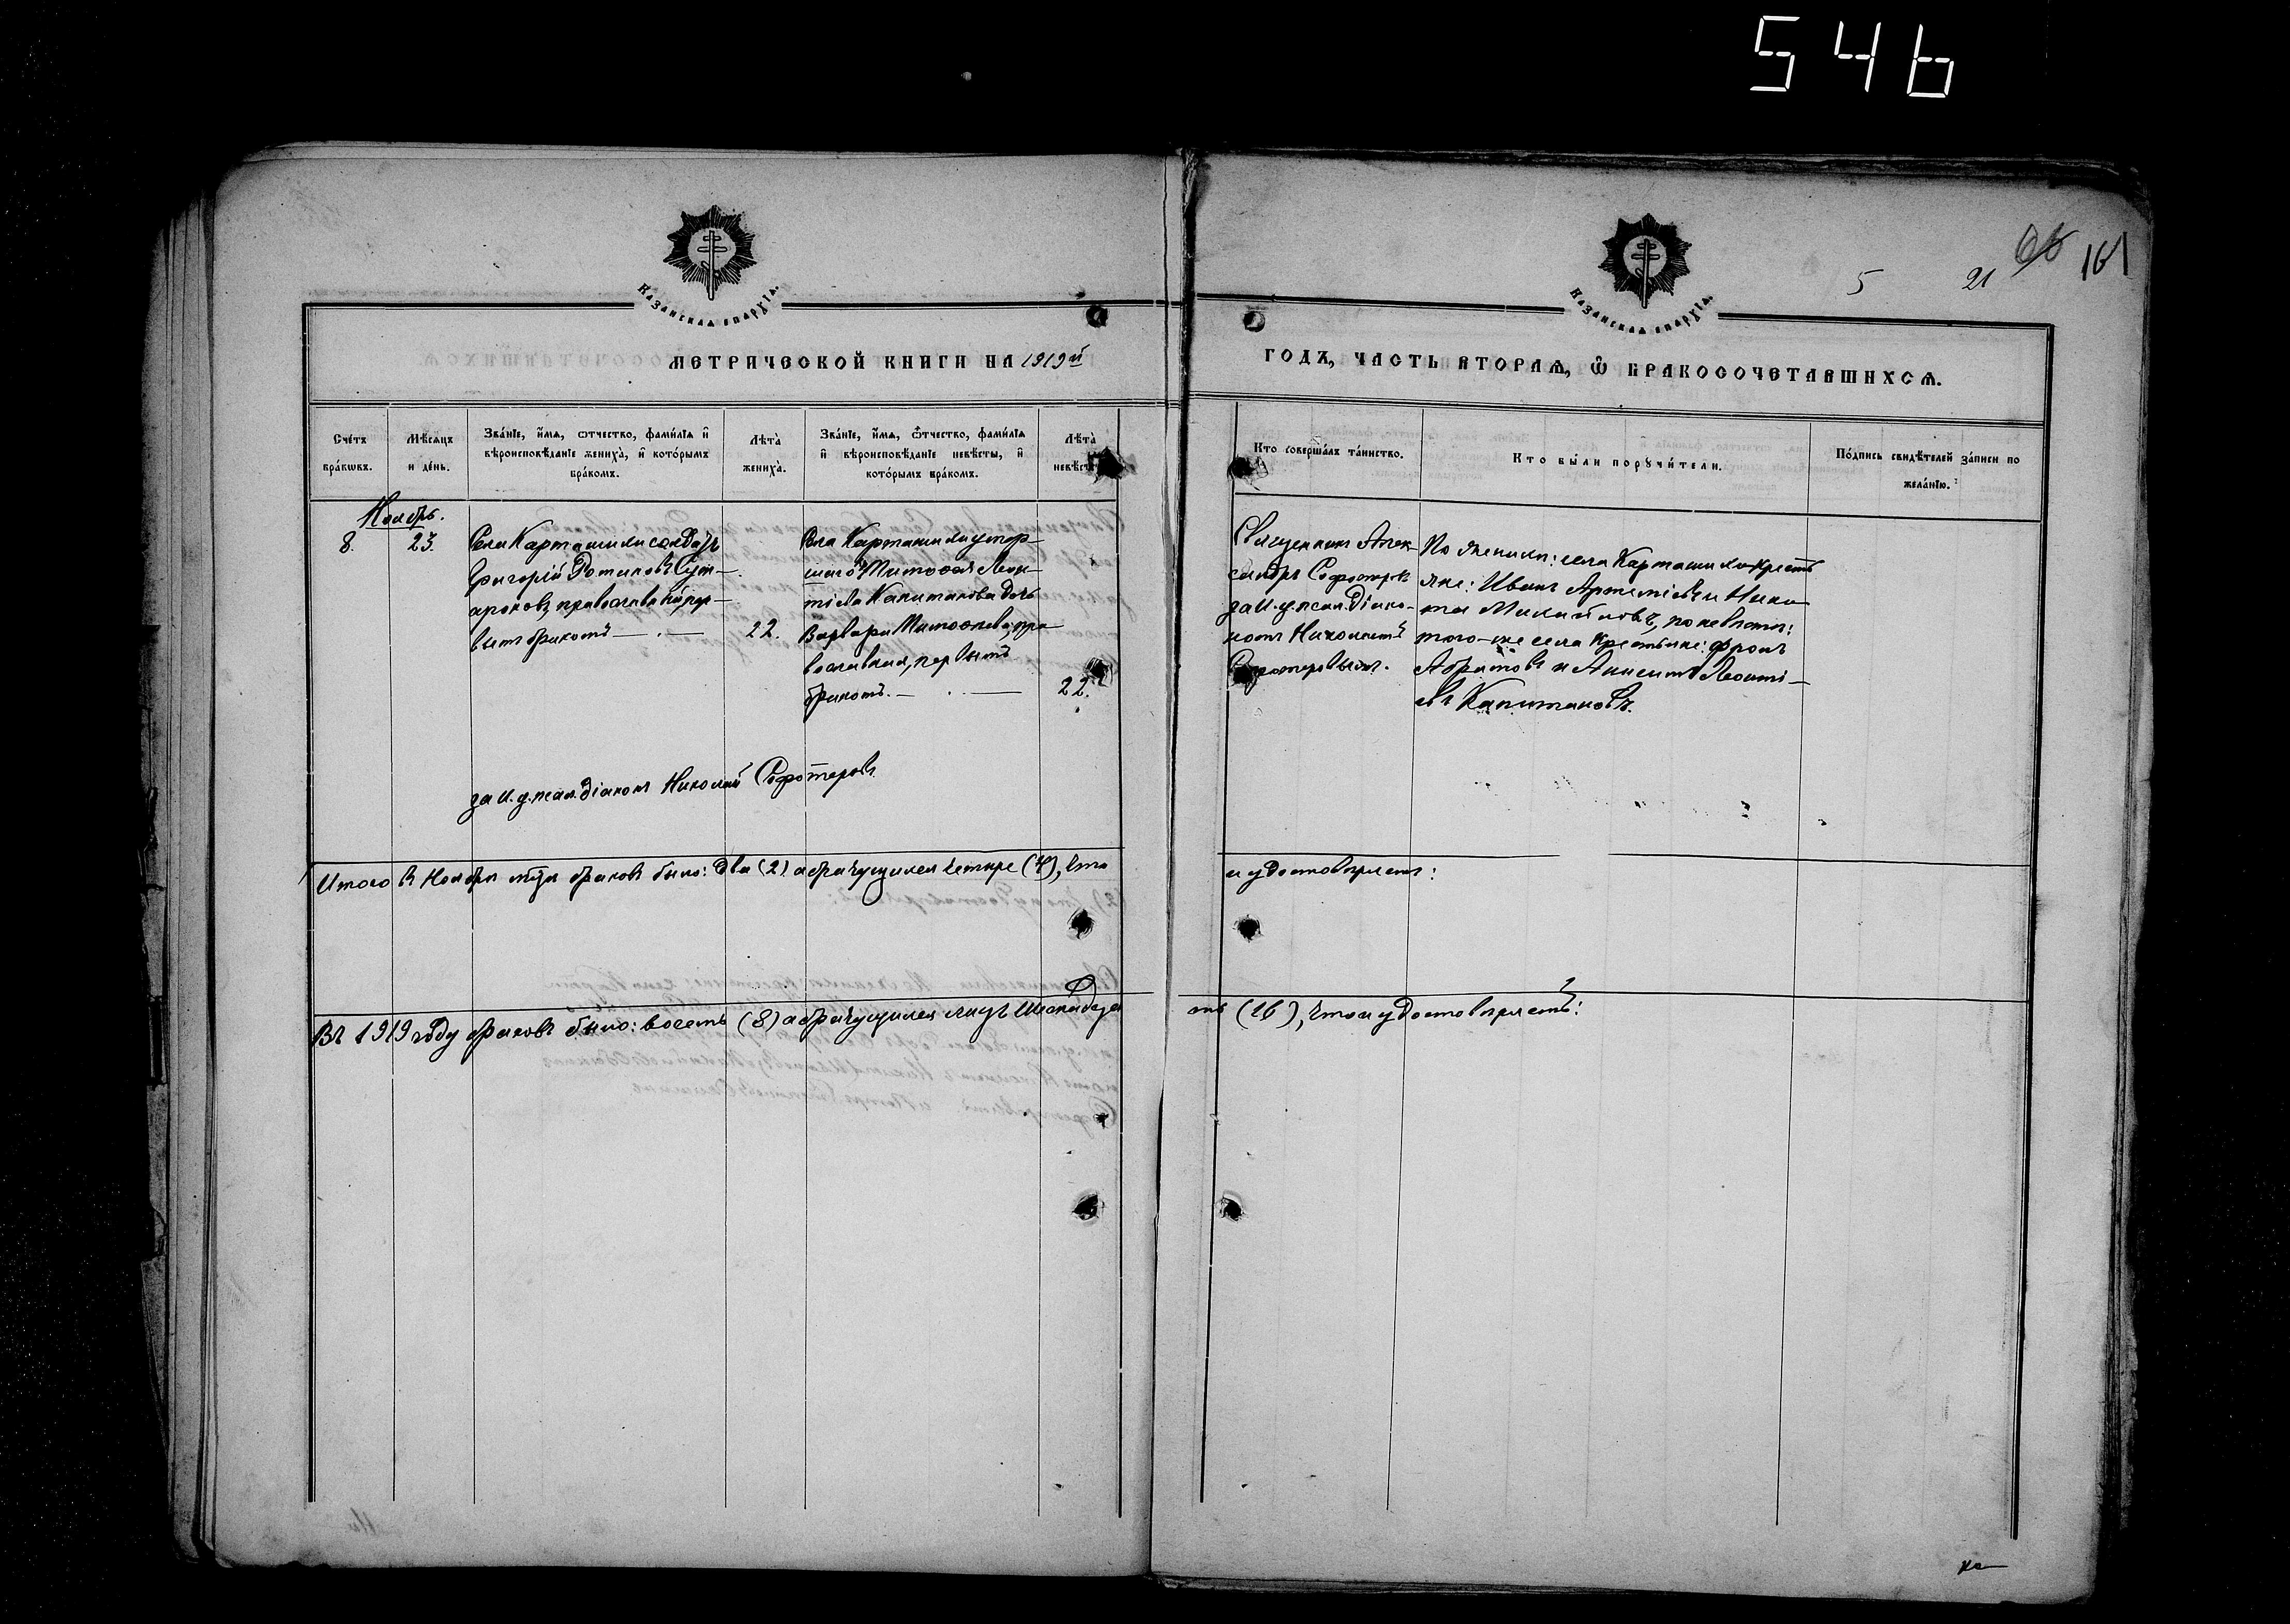 546
5 21 66 161
КАЗАНСКАѦ ЕПАРХІА.
КАЗАНСКАѦ ЕПАРХІА.
МЕТРИЧЕСКОЙ КНИГИ НА 1919й
ГОДЪ, ЧАСТЬ ВТОРАѦ, Ѽ БРАКОСОЧЕТАВШИХСѦ.
Сче́тъ бра́кѡвъ.
Мѣ́сѧцъ и де́нь.
Зва́нїе, и҆́мѧ, ѻтчество, фамилїѧ и҆ вѣроисповѣданїе жениха̀, и҆ кото́рымъ бра́комъ.
Лѣта̀ жениха̀.
Зва́нїе, и҆́мѧ, ѻтчество, фамилїѧ и҆ вѣроисповѣданїе невѣсты, и҆ кото́рымъ бра́комъ.
Лѣта̀ невѣсты
Кто совершалъ таинство.
Кто были порꙋчители.
По́дпись свидѣтелей за́писи по жела́нїю.
Ноябрь.
8. 23.
Села Карташихи солдатъ
Григорій
православный, пер-
вымъ бракомъ — . — 22.
Села Карташихи умер-
шаго Леон-
тіева Капитанова дочь
Варвара пра-
вославная, первымъ
бракомъ. — . — 22.
Священникъ Алек-
сандръ Софотеровъ
за и. д. псал. діако-
номъ Николаемъ
Софотеровымъ.
По женихѣ: села Карташихи крестья-
яне: Иванъ Артемьевъ и Ники-
та по невѣстѣ:
того-же села крестьяне:
и Леонті-
евъ Капитановъ.
за и. д. псал. діаконъ Николай Софотеровъ
Итого въ Ноябрѣ м-цѣ браковъ было: два (2) а брачущихся четыре (4), что
и удостовѣряемъ:
Въ 1919 году браковъ было: восемь (8) а брачущихся лицъ шестнадца
ть (16), что и удостовѣряемъ: